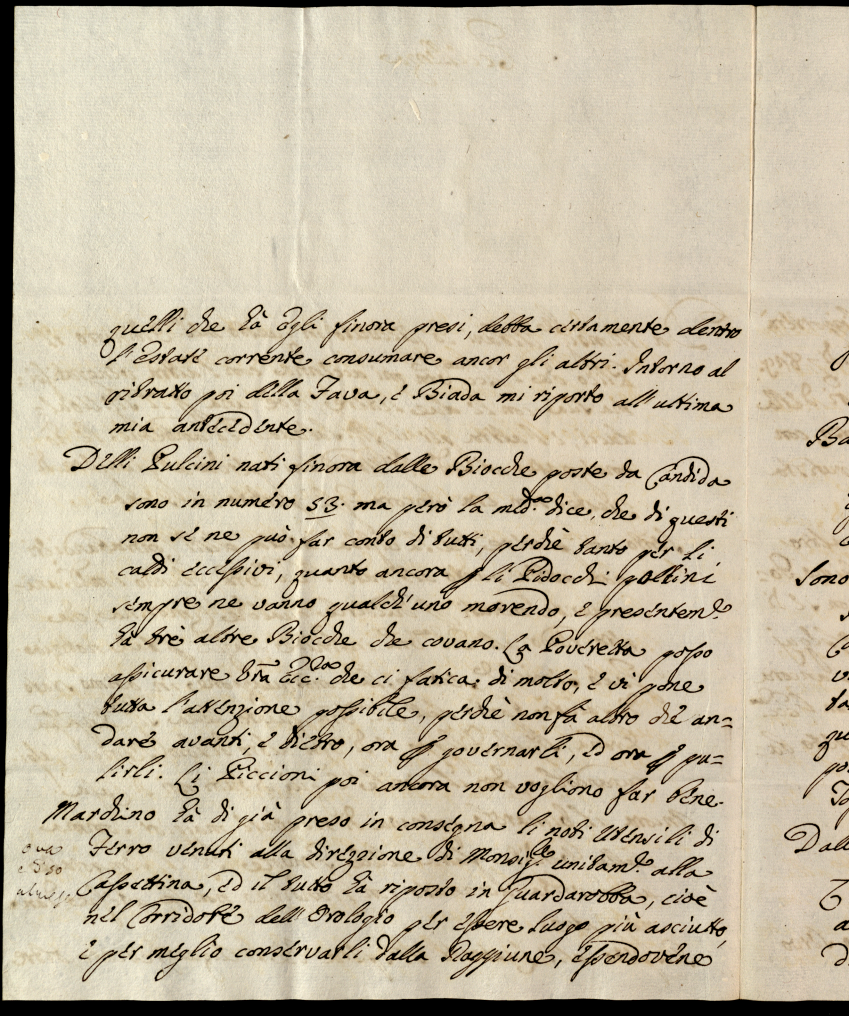 quelli che hà Egli finora presi, debba certamente dentro
l'Estate corrente consumare ancor gli altri. Intorno al
ritratto poi della Fava, e Biada mi riporto all'ultima
mia antecedente.
Delli Pulcini nati finora dalle Biocche poste da Candida
sono in numero 53. ma però la med.ma dice, che di questi
non se ne può far conto di tutti, perchè tanto per li
caldi eccessivi, quanto ancora p li Pidocchi pollini
sempre ne vanno qualch'uno morendo, e presentem.e
hà trè altre Biocche che covano. La Poveretta posso
assicurare Vra Ecc.a che ci fatica di molto, e vi pone
tutta l'attenzione possibile, perchè non fà altro che an=
dare avanti, e dietro, ora p governarli, ed ora p pu=
lirli. Li Piccioni poi ancora non vogliono far bene.
Marchino hà di già preso in consegna li noti Utensili di
Ferro venuti alla direzzione di Monsig.re unitam.e alla
Cassettina, ed il tutto hà riposto in Guardarobba, cioè
nel Corridore dell'Orologio per essere luogo più asciutto,
e per meglio conservarli dalla Ruggiune, essendovene
Ba
sono
Dall